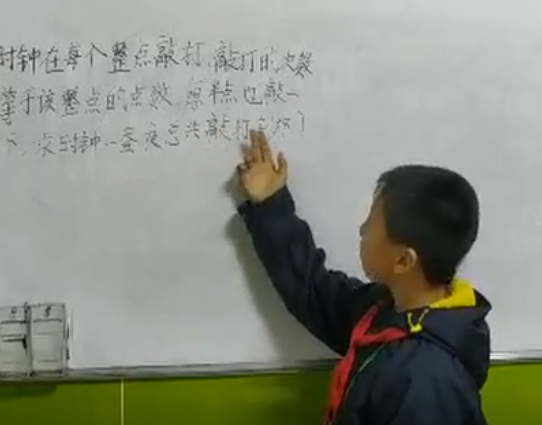 时钟在每个整点敲打,敲打的次数
等于该整点的点数,每半点也敲一
下,求时钟一昼夜总共敲打